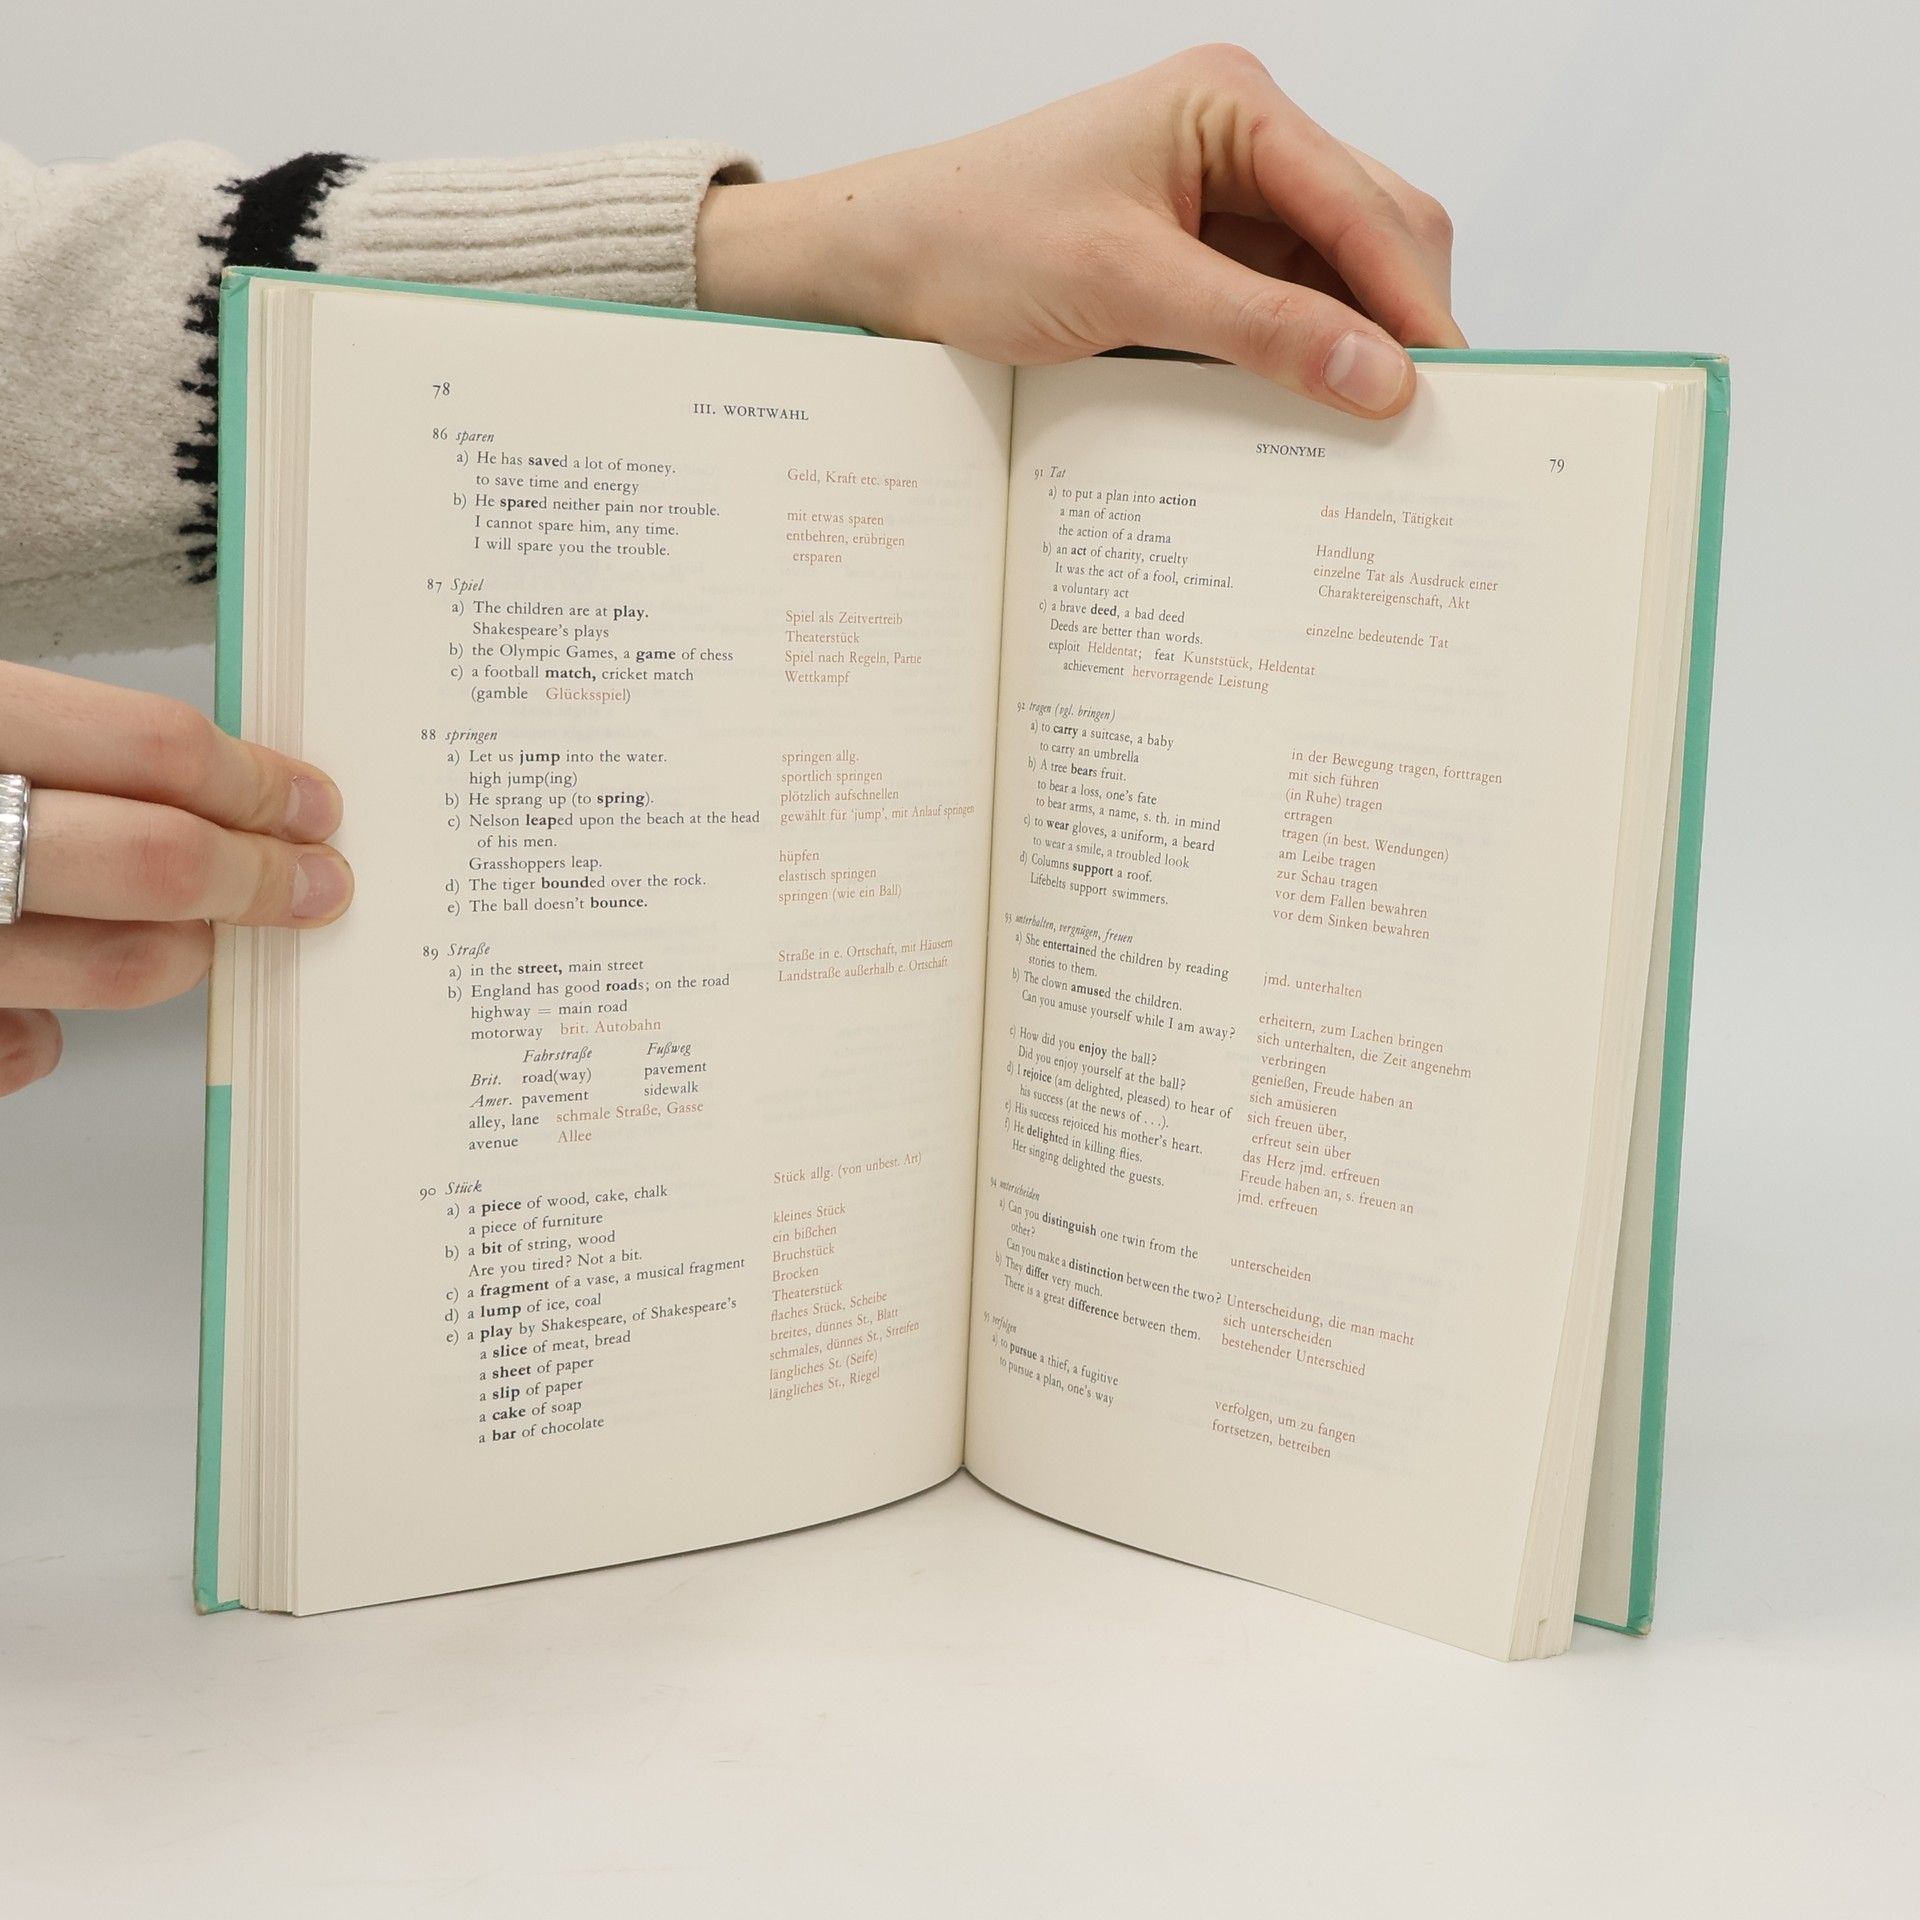 78
III. WORTWAHL
86 sparen
a) He has saved a lot of money.
to save time and energy
Geld, Kraft etc. sparen
b) He spared neither pain nor trouble.
mit etwas sparen
I cannot spare him, any time.
entbehren, erübrigen
I will spare you the trouble.
ersparen
87 Spiel
a) The children are at play.
Spiel als Zeitvertreib
Shakespeare's plays
Theaterstück
b) the Olympic Games, a game of chess
Spiel nach Regeln, Partie
c) a football match, cricket match
Wettkampf
(gamble Glücksspiel)
88 springen
a) Let us jump into the water.
springen allg.
high jump(ing)
sportlich springen
b) He sprang up (to spring).
plötzlich aufschnellen
c) Nelson leaped upon the beach at the head
gewählt für 'jump', mit Anlauf springen
of his men.
Grasshoppers leap.
hüpfen
d) The tiger bounded over the rock.
elastisch springen
e) The ball doesn't bounce.
springen (wie ein Ball)
89 Straße
a) in the street, main street
Straße in e. Ortschaft, mit Häusern
b) England has good roads; on the road
Landstraße außerhalb e. Ortschaft
highway = main road
motorway brit. Autobahn
Fahrstraße Fußweg
Brit. road(way) pavement
Amer. pavement sidewalk
alley, lane schmale Straße, Gasse
avenue Allee
90 Stück
a) a piece of wood, cake, chalk
Stück allg. (von unbest. Art)
a piece of furniture
b) a bit of string, wood
kleines Stück
Are you tired? Not a bit.
ein bißchen
c) a fragment of a vase, a musical fragment
Bruchstück
d) a lump of ice, coal
Brocken
e) a play by Shakespeare, of Shakespeare's
Theaterstück
a slice of meat, bread
flaches Stück, Scheibe
a sheet of paper
breites, dünnes St., Blatt
a slip of paper
schmales, dünnes St., Streifen
a cake of soap
längliches St. (Seife)
a bar of chocolate
längliches St., Riegel
SYNONYME
79
91 Tat
a) to put a plan into action
das Handeln, Tätigkeit
a man of action
the action of a drama
Handlung
b) an act of charity, cruelty
einzelne Tat als Ausdruck einer
It was the act of a fool, criminal.
Charaktereigenschaft, Akt
a voluntary act
c) a brave deed, a bad deed
einzelne bedeutende Tat
Deeds are better than words.
exploit Heldentat; feat Kunststück, Heldentat
achievement hervorragende Leistung
92 tragen (vgl. bringen)
a) to carry a suitcase, a baby
in der Bewegung tragen, forttragen
to carry an umbrella
mit sich führen
b) A tree bears fruit.
(in Ruhe) tragen
to bear a loss, one's fate
ertragen
to bear arms, a name, s. th. in mind
tragen (in best. Wendungen)
c) to wear gloves, a uniform, a beard
am Leibe tragen
to wear a smile, a troubled look
zur Schau tragen
d) Columns support a roof.
vor dem Fallen bewahren
Lifebelts support swimmers.
vor dem Sinken bewahren
93 unterhalten, vergnügen, freuen
a) She entertained the children by reading
jmd. unterhalten
stories to them.
b) The clown amused the children.
erheitern, zum Lachen bringen
Can you amuse yourself while I am away?
sich unterhalten, die Zeit angenehm
verbringen
c) How did you enjoy the ball?
genießen, Freude haben an
Did you enjoy yourself at the ball?
sich amüsieren
d) I rejoice (am delighted, pleased) to hear of
sich freuen über,
his success (at the news of . . .).
erfreut sein über
e) His success rejoiced his mother's heart.
das Herz jmd. erfreuen
f) He delighted in killing flies.
Freude haben an, s. freuen an
Her singing delighted the guests.
jmd. erfreuen
94 unterscheiden
a) Can you distinguish one twin from the
unterscheiden
other?
Can you make a distinction between the two?
Unterscheidung, die man macht
b) They differ very much.
sich unterscheiden
There is a great difference between them.
bestehender Unterschied
95 verfolgen
a) to pursue a thief, a fugitive
verfolgen, um zu fangen
to pursue a plan, one's way
fortsetzen, betreiben